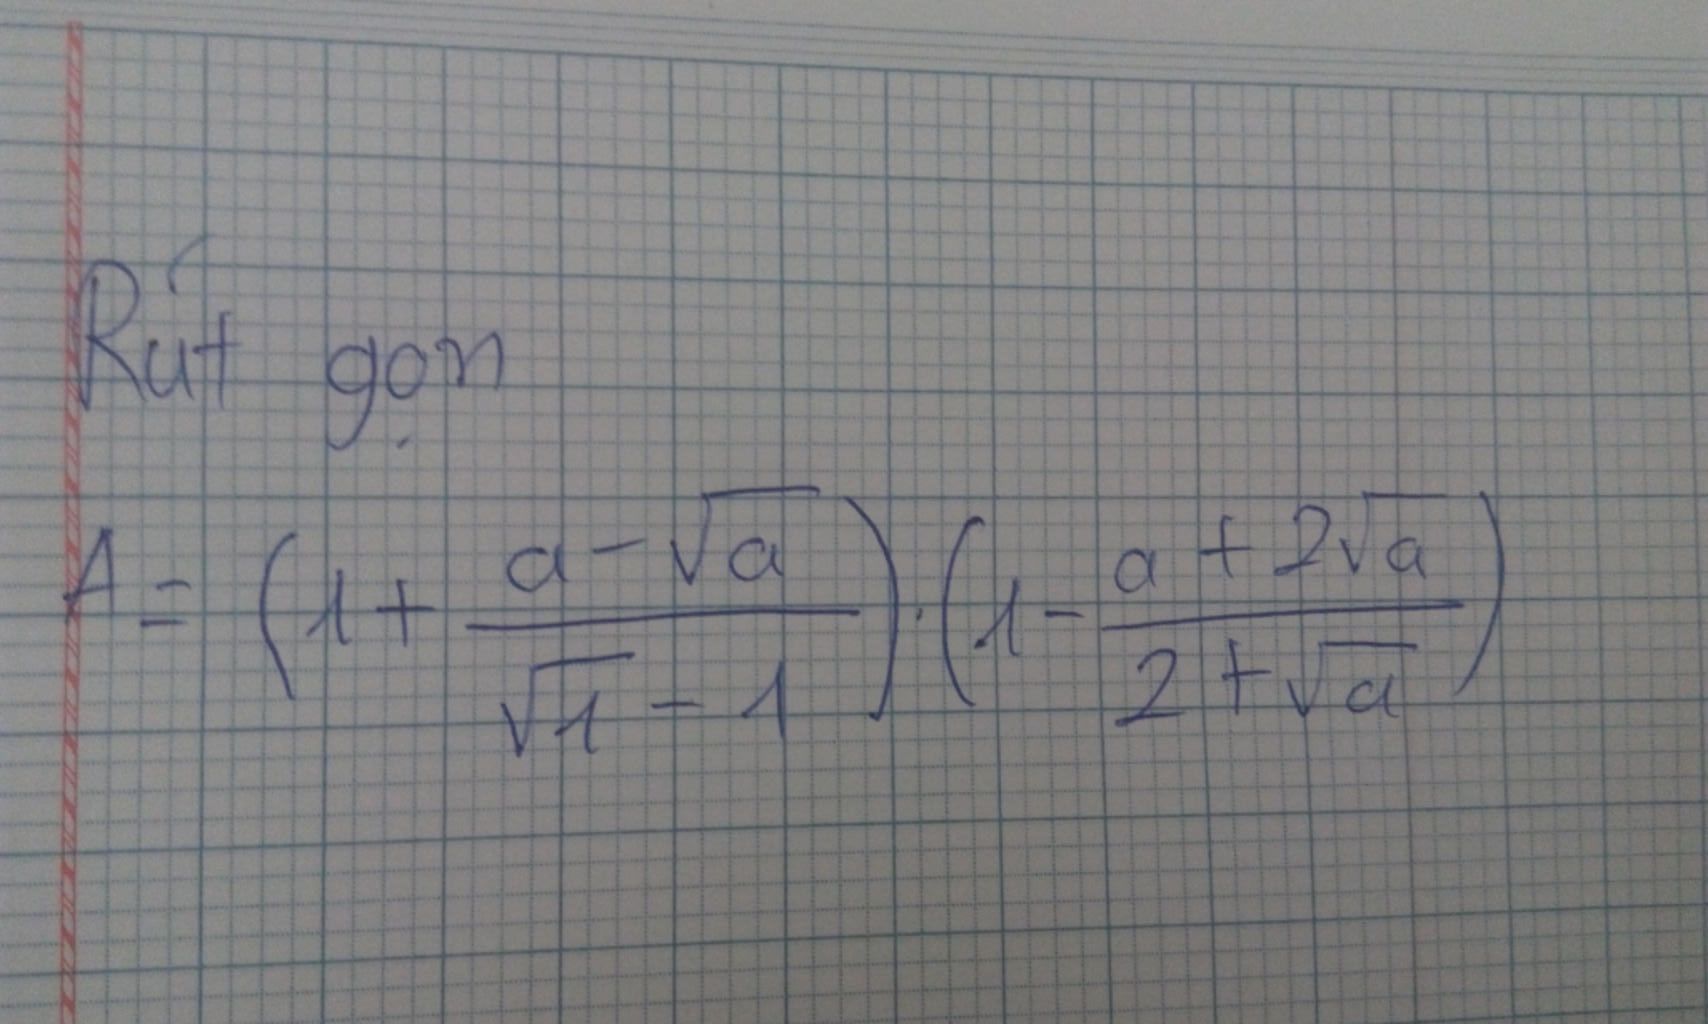 Rút gọn
A = (1 + \frac{a - \sqrt{a}}{\sqrt{1} - 1}) \cdot (1 - \frac{a + 2\sqrt{a}}{2 + \sqrt{a}})